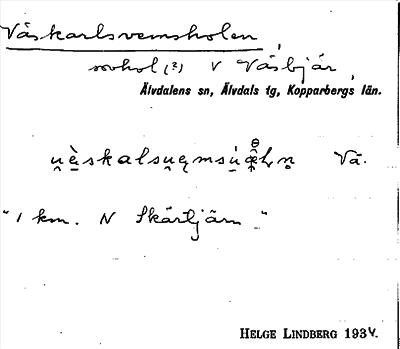 Väskarlsvemsholen,
sovhol (?) V Väsbjär,
Älvdalens sn, Älvdals tg, Kopparbergs län.
Vä.
"1 km. N Skärtjärn."
HELGE LINDBERG 193V.